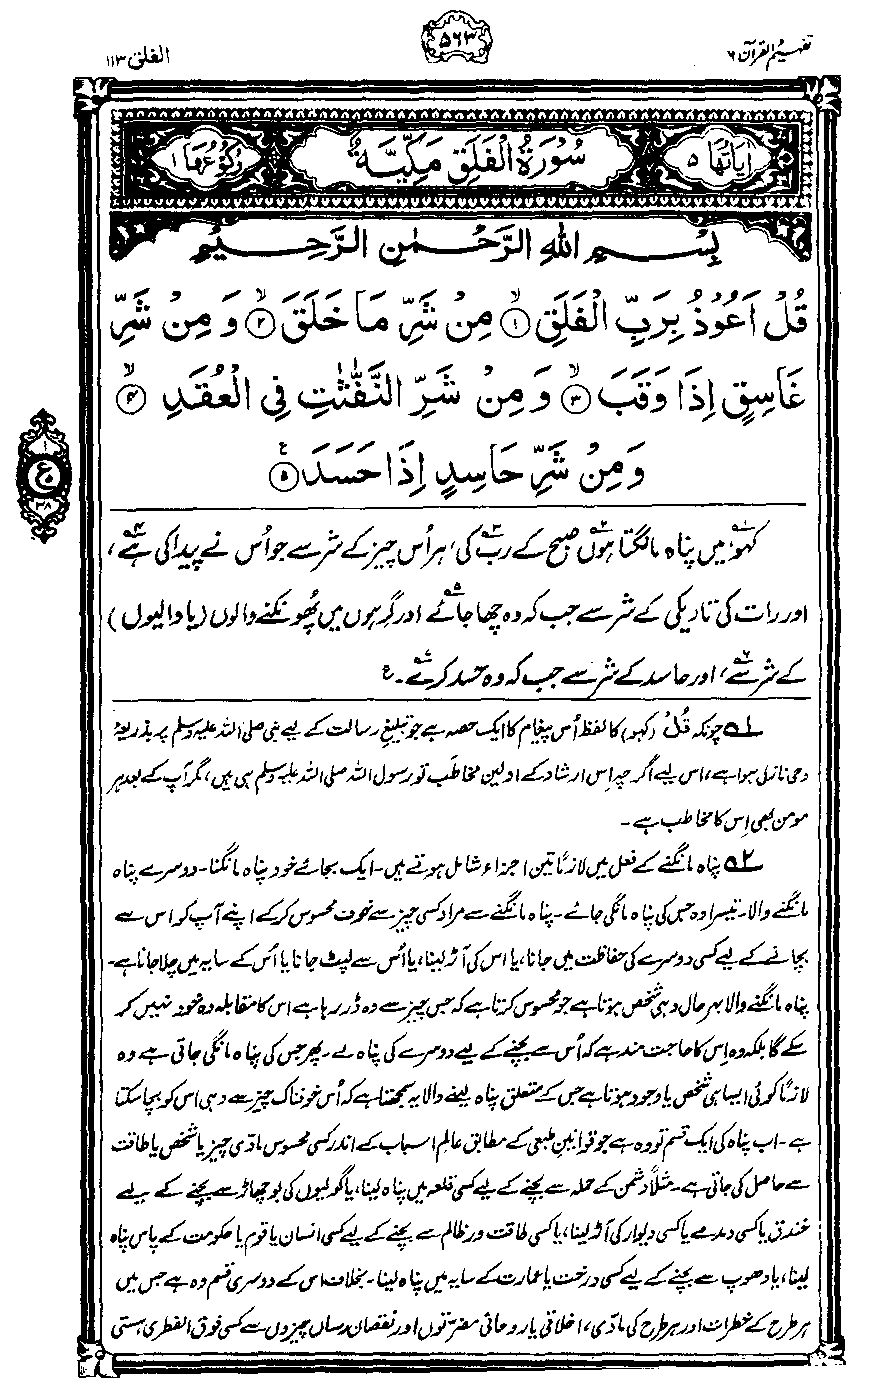 تفہیم القرآن ۶
۵۶۳
الفلق ۱۱۳
اٰیَاتُهَا ۵
سُوْرَةُ الْفَلَقِ مَكِّيَّةٌ
رُكُوْعُهَا ۱
بِسْمِ اللّٰهِ الرَّحْمٰنِ الرَّحِيْمِ
قُلْ اَعُوْذُ بِرَبِّ الْفَلَقِ ۙ﴿۱﴾ مِنْ شَرِّ مَا خَلَقَ ۙ﴿۲﴾ وَ مِنْ شَرِّ
غَاسِقٍ اِذَا وَقَبَ ۙ﴿۳﴾ وَ مِنْ شَرِّ النَّفّٰثٰتِ فِی الْعُقَدِ ۙ﴿۴﴾
وَ مِنْ شَرِّ حَاسِدٍ اِذَا حَسَدَ ﴿۵﴾ ع
ع
۱
۵
۳۸
کہو،۱؎ میں پناہ مانگتا ہوں۲؎ صبح کے رب۳؎ کی، ہر اُس چیز کے شر سے جو اُس نے پیدا کی ہے،۴؎
اور رات کی تاریکی کے شر سے جب کہ وہ چھا جائے،۵؎ اور گرہوں میں پُھونکنے والوں (یا والیوں)
کے شر سے،۶؎ اور حاسد کے شر سے جب کہ وہ حسد کرے۔۷؎ ع
۱؎ چونکہ قُلْ (کہو) کا لفظ اُس پیغام کا ایک حصہ ہے جو تبلیغِ رسالت کے لیے نبی صلی اللہ علیہ وسلم پر بذریعۂ
وحی نازل ہوا ہے، اس لیے اگرچہ اِس ارشاد کے اولین مخاطَب تو رسول اللہ صلی اللہ علیہ وسلم ہی ہیں، مگر آپ کے بعد ہر
مومن بھی اِس کا مخاطب ہے۔
۲؎ پناہ مانگنے کے فعل میں لازمًا تین اجزاء شامل ہوتے ہیں۔ ایک بجائے خود پناہ مانگنا۔ دوسرے پناہ
مانگنے والا۔ تیسرا وہ جس کی پناہ مانگی جائے۔ پناہ مانگنے سے مراد کسی چیز سے خوف محسوس کر کے اپنے آپ کو اس سے
بچانے کے لیے کسی دوسرے کی حفاظت میں جانا، یا اس کی آڑ لینا، یا اُس سے لپٹ جانا یا اُس کے سایہ میں چلا جانا ہے۔
پناہ مانگنے والا بہرحال وہی شخص ہوتا ہے جو محسوس کرتا ہے کہ جس چیز سے وہ ڈر رہا ہے اس کا مقابلہ وہ خود نہیں کر
سکے گا بلکہ وہ اِس کا حاجت مند ہے کہ اُس سے بچنے کے لیے دوسرے کی پناہ لے۔ پھر جس کی پناہ مانگی جاتی ہے وہ
لازمًا کوئی ایسا ہی شخص یا وجود ہوتا ہے جس کے متعلق پناہ لینے والا یہ سمجھتا ہے کہ اُس خوفناک چیز سے وہی اس کو بچا سکتا
ہے۔ اب پناہ کی ایک قسم تو وہ ہے جو قوانینِ طبعی کے مطابق عالمِ اسباب کے اندر کسی محسوس مادّی چیز یا شخص یا طاقت
سے حاصل کی جاتی ہے۔ مثلاً دشمن کے حملہ سے بچنے کے لیے کسی قلعہ میں پناہ لینا، یا گولیوں کی بوچھاڑ سے بچنے کے لیے
خندق یا کسی دمدمے یا کسی دیوار کی آڑ لینا، یا کسی طاقت ور ظالم سے بچنے کے لیے کسی انسان یا قوم یا حکومت کے پاس پناہ
لینا، یا دھوپ سے بچنے کے لیے کسی درخت یا عمارت کے سایہ میں پناہ لینا۔ بخلاف اس کے دوسری قسم وہ ہے جس میں
ہر طرح کے خطرات اور ہر طرح کی مادّی، اخلاقی یا روحانی مضرّتوں اور نقصان رساں چیزوں سے کسی فوق الفطری ہستی